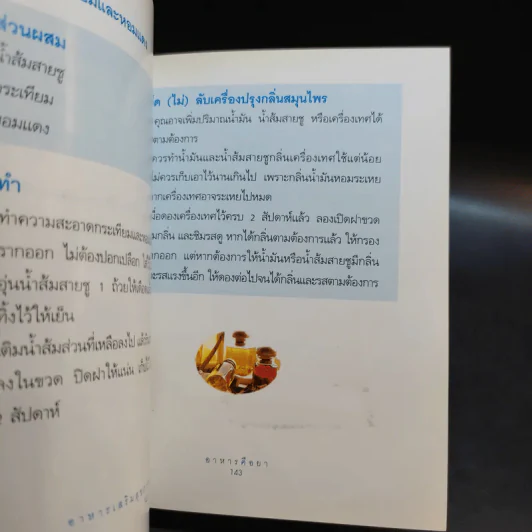 มและหอมแดง
ส่วนผสม
น้ำส้มสายชู
กระเทียม
หอมแดง
ทำ
ทำความสะอาดกระเทียมและหอม
รากออก ไม่ต้องปอกเปลือก
อุ่นน้ำส้มสายชู 1 ถ้วยให้เดือด
ทิ้งไว้ให้เย็น
เติมน้ำส้มส่วนที่เหลือลงไป
ลงในขวด ปิดฝาให้แน่น
สัปดาห์
อาหารเสริมสุข
(ไม่) ลับเครื่องปรุงกลิ่นสมุนไพร
คุณอาจเพิ่มปริมาณน้ำมัน น้ำส้มสายชู หรือเครื่องเทศได้
ตามต้องการ
ควรทำน้ำมันและน้ำส้มสายชูกลิ่นเครื่องเทศใช้แต่น้อย
ไม่ควรเก็บเอาไว้นานเกินไป เพราะกลิ่นน้ำมันหอมระเหย
ากเครื่องเทศอาจระเหยไปหมด
มื่อดองเครื่องเทศไว้ครบ 2 สัปดาห์แล้ว ลองเปิดฝาขวด
มกลิ่น และชิมรสดู หากได้กลิ่นตามต้องการแล้ว ให้กรอง
ากออก แต่หากต้องการให้น้ำมันหรือน้ำส้มสายชูมีกลิ่น
ละรสแรงขึ้นอีก ให้ดองต่อไปจนได้กลิ่นและรสตามต้องการ
อาหารคือยา
143